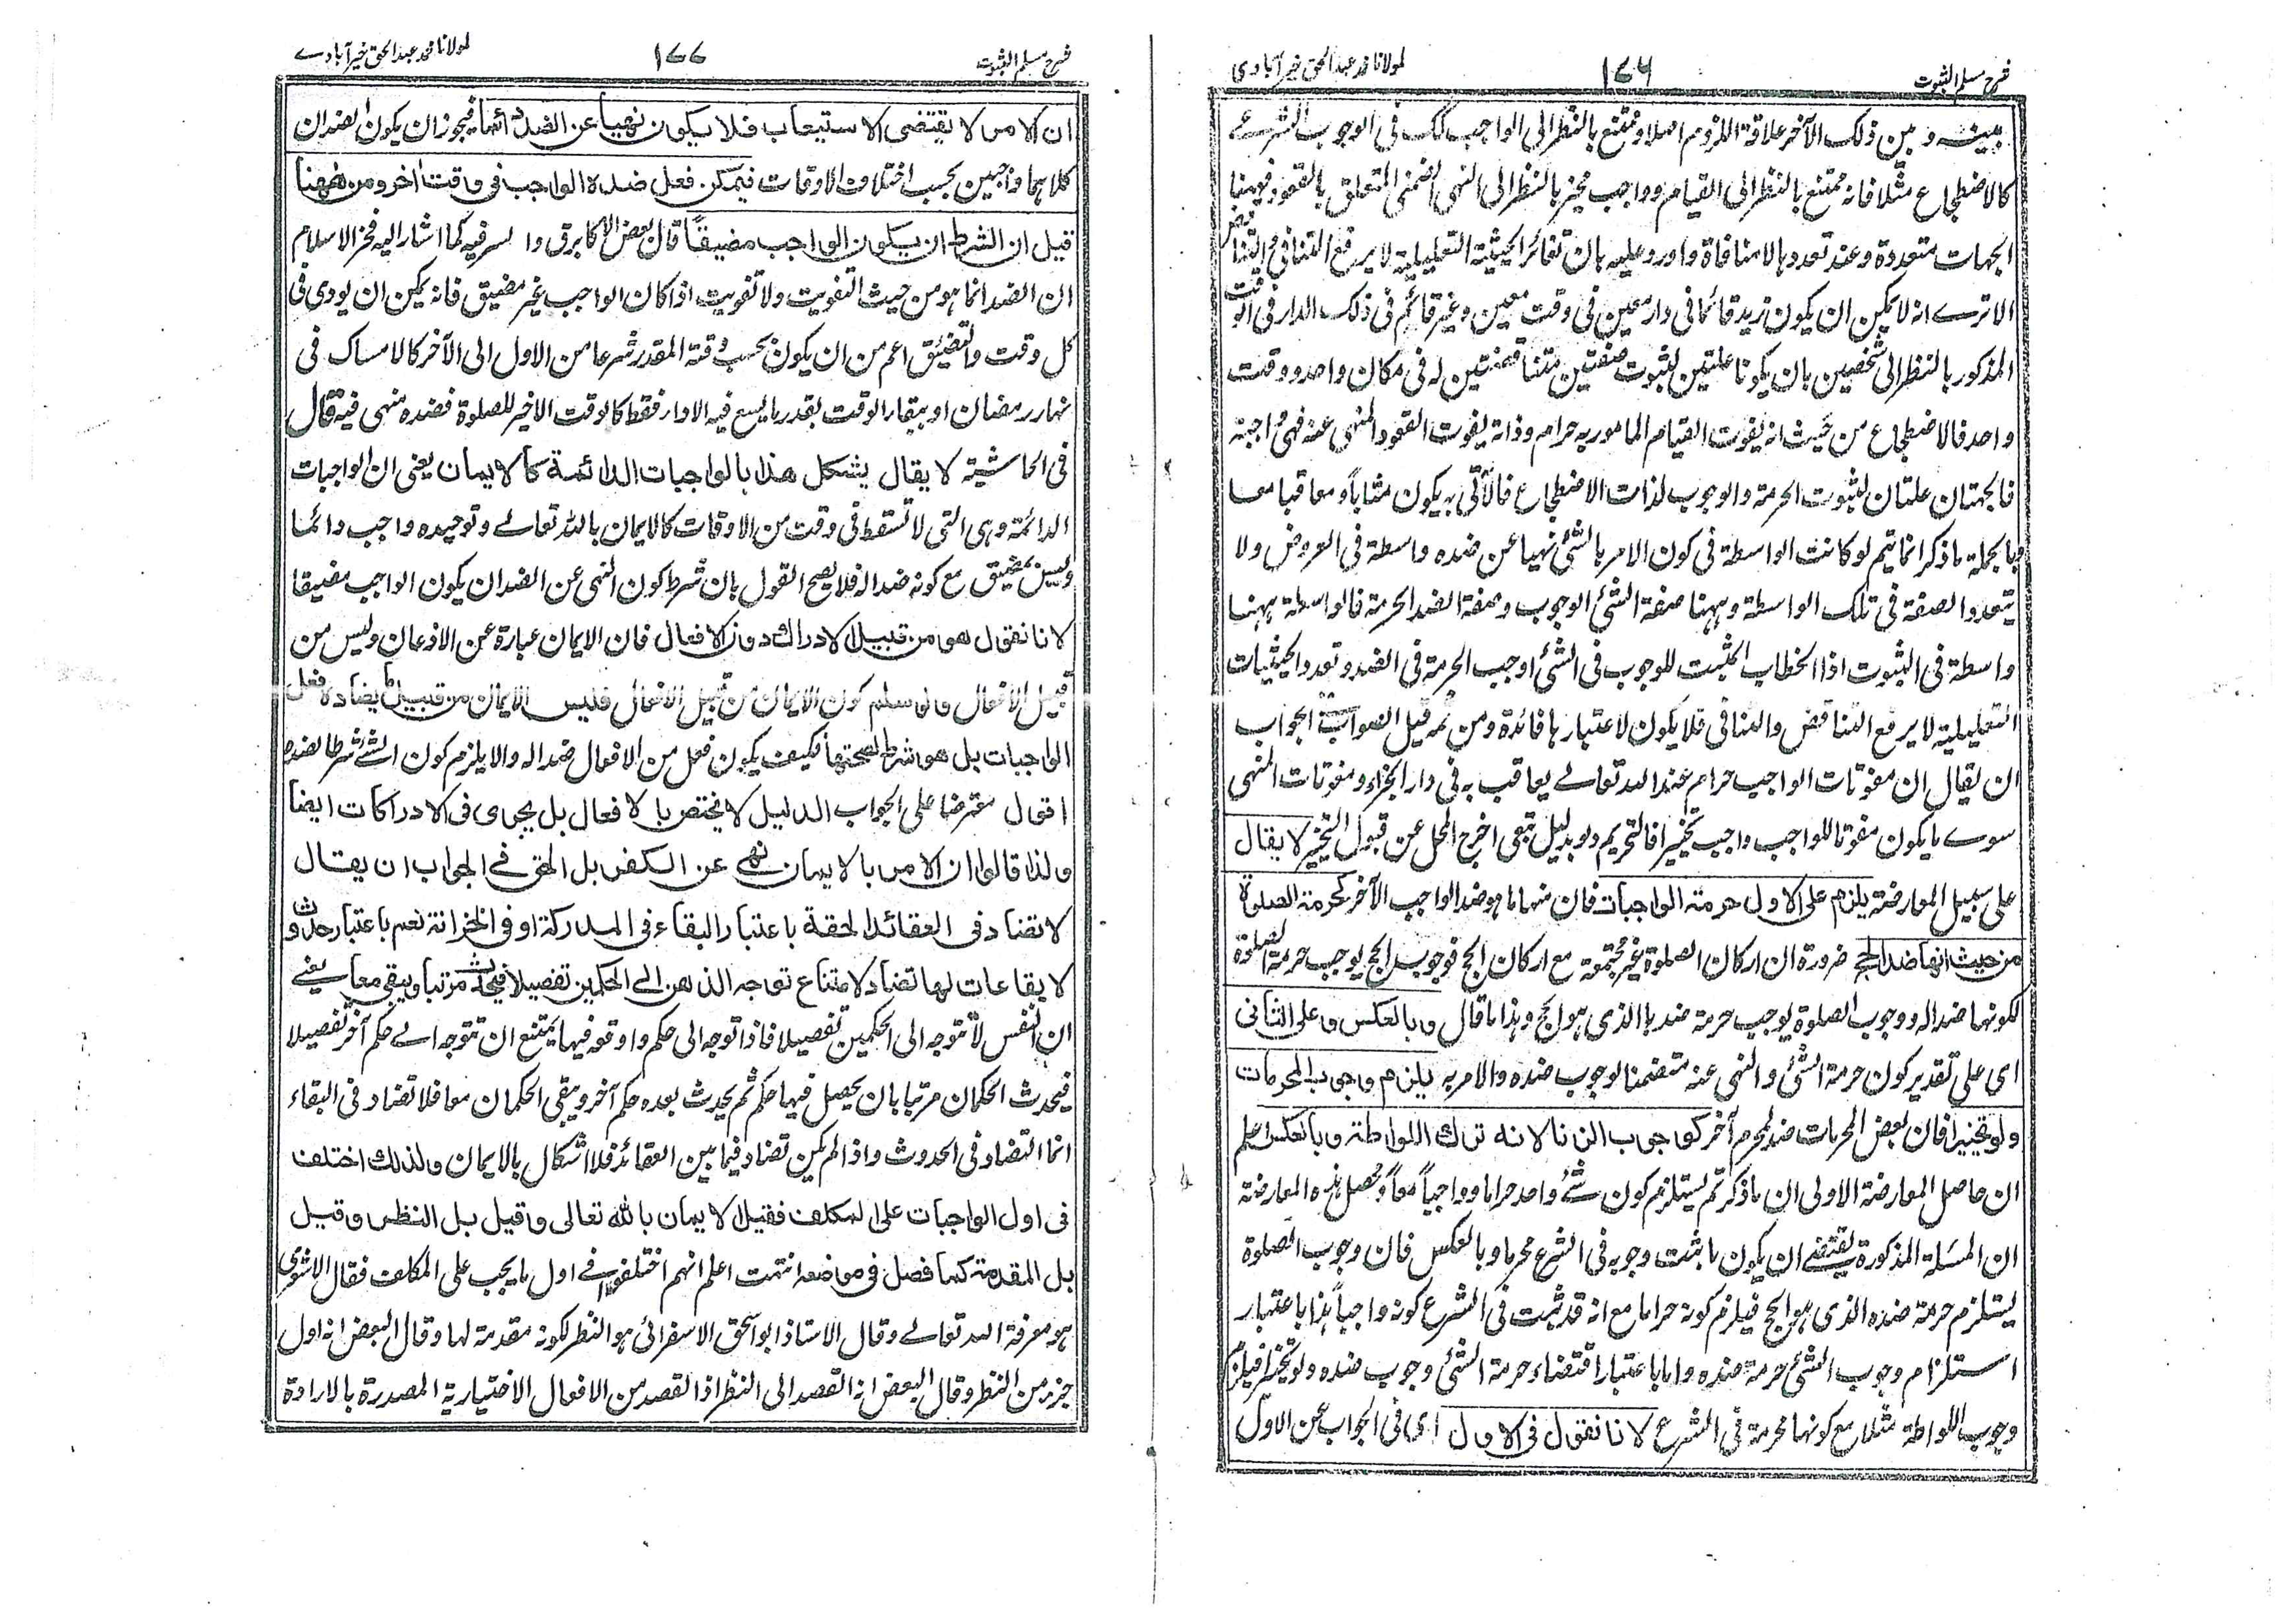 شرح مسلم الثبوت ١٧٦ لمولانا محمد عبد الحق خيرآبادى
بينه وبين ذلك الآخر علاقة اللزوم اصلا وممتنع بالنظر الى الواجب كك فى الوجوب الشرعے
كالاضطجاع مثلا فانه ممتنع بالنظر الى القيام وواجب مخير بالنظر الى النهى الضمنى المتعلق بالقعود فههنا
الجهات متعددة وعند تعددها لا منافاة واورد عليه بان تغائر الحيثية التعليلية لا يرفع التنافى والتناقض
الا ترے انه لا يمكن ان يكون زيد قائما فى دار معين فى وقت معين وغير قائم فى ذلك الدار فى الوقت
المذكور بالنظر الى شخصين بان يكونا علتين لثبوت صفتين متناقضتين له فى مكان واحد ووقت
واحد فالاضطجاع من حيث انه يفوت القيام المامور به حرام وذاته يفوت القعود المنهى عنه فهى واجبة
فالجهتان علتان لثبوت الحرمة والوجوب لذات الاضطجاع فالآتى به يكون مثابا ومعاقبا معا
وبالجملة ما ذكر انما يتم لو كانت الواسطة فى كون الامر بالشئ نهيا عن ضده واسطة فى العروض ولا
يتعدد الصفة فى تلك الواسطة وههنا صفة الشئ الوجوب وصفة الضد الحرمة فالواسطة ههنا
واسطة فى الثبوت اذ الخطاب المثبت للوجوب فى الشئ اوجب الحرمة فى الضد وتعدد الحيثيات
التعليلية لا يرفع التناقض والتنافى فلا يكون لاعتبارها فائدة ومن ثمه قيل الصواب فى الجواب
ان يقال ان مفوتات الواجب حرام عند الله تعالے يعاقب به فى دار الجزاء ومفوتات المنهى
سوے ما يكون مفوتا للواجب واجب تخييرا فالتحريم ولو بدليل تبعى اخرج المحل عن قبول التخيير لا يقال
على سبيل المعارضة يلزم على الاول حرمة الواجبات فان منها ما هو ضد الواجب الآخر كحرمة الصلوة
من حيث انها ضد الحج ضرورة ان اركان الصلوة غير مجتمعة مع اركان الحج فوجوب الحج يوجب حرمة الصلوة
لكونها ضدا له ووجوب الصلوة يوجب حرمة ضدها الذى هو الحج وهذا ما قال وبالعكس وعلى الثانى
اى على تقدير كون حرمة الشئ والنهى عنه متضمنا لوجوب ضده والامر به يلزم وجوب المحرمات
ولو تخييرا فان بعض المحرمات ضد لمحرم آخر كوجوب الزنا لانه ترك اللواطة وبالعكس اعلم
ان حاصل المعارضة الاولى ان ما ذكرتم يستلزم كون شئ واحد حراما وواجبا معا ومحصل هذه المعارضة
ان المسئلة المذكورة يقتضے ان يكون ما ثبت وجوبه فى الشرع محرما وبالعكس فان وجوب الصلوة
يستلزم حرمة ضده الذى هو الحج فيلزم كونه حراما مع انه قد ثبت فى الشرع كونه واجبا هذا باعتبار
استلزام وجوب الشئ حرمة ضده واما باعتبار اقتضاء حرمة الشئ وجوب ضده ولو تخييرا فيلزم
وجوب اللواطة مثلا مع كونها محرمة فى الشرع لانا نقول فى الاول اى فى الجواب عن الاول
شرح مسلم الثبوت ١٧٧ لمولانا محمد عبد الحق خيرآبادے
ان الامر لا يقتضى الاستيعاب فلا يكون نهيا عن الضد دائما فيجوز ان يكون الضدان
كلاهما واجبين بحسب اختلاف الاوقات فيمكن فعل ضده الواجب فى وقت آخر ومن ههنا
قيل ان الشرط ان يكون الواجب مضيقا قال بعض الاكابر ق والسر فيه كما اشار اليه فخر الاسلام
ان الضد انما هو من حيث التفويت ولا تفويت اذا كان الواجب غير مضيق فانه يمكن ان يودى فى
كل وقت والتضيق اعم من ان يكون بحسب وقته المقدر شرعا من الاول الى الآخر كالامساك فى
نهار رمضان او ببقاء الوقت بقدر ما يسع فيه الاداء فقط كالوقت الاخير للصلوة فضده منهى فيه قال
فى الحاشية لا يقال يشكل هذا بالواجبات الدائمة كالايمان يعنى ان الواجبات
الدائمة وهى التى لا تسقط فى وقت من الاوقات كالايمان بالله تعالے وتوحيده واجب دائما
وليس بمضيق مع كونه ضدا له فلا يصح القول بان شرط كون النهى عن الضد ان يكون الواجب مضيقا
لانا نقول هو من قبيل الادراك دون الافعال فان الايمان عبارة عن الاذعان وليس من
قبيل الافعال ولو سلم كون الايمان من قبيل الافعال فليس الايمان من قبيل ما يضاده فعل
الواجبات بل هو شرط لصحتها فكيف يكون فعل من الافعال ضدا له والا يلزم كون الشئ شرطا لضده
اقول معترضا على الجواب الدليل لا يختص بالافعال بل يجرى فى الادراكات ايضا
ولذا قالوا ان الامر بالايمان نهے عن الكفر بل الحق فے الجواب ان يقال
لا تضاد فى العقائد الحقة باعتبار البقاء فى المدركة او فى الخزانة نعم باعتبار حدوث
الايقاعات لها تضاد لامتناع توجه الذهن الے الحكمين تفصيلا فيحدث مرتبا ويبقى معا يعنے
ان النفس لا تتوجه الى الحكمين تفصيلا فاذا توجه الى حكم واوقعه فيها يمتنع ان تتوجه الے حكم آخر تفصيلا
فيحدث الحكمان مرتبا بان يحصل فيها حكم ثم يحدث بعده حكم آخر ويبقى الحكمان معا فلا تضاد فى البقاء
انما التضاد فى الحدوث واذا لم يكن تضاد فيما بين العقائد فلا اشكال بالايمان ولذلك اختلف
فى اول الواجبات على المكلف فقيل الايمان بالله تعالى وقيل بل النظر وقيل
بل المقدمة كما فصل فى مواضعه انتهت اعلم انهم اختلفوا فے اول ما يجب على المكلف فقال الاشعرى
هو معرفة الله تعالے وقال الاستاذ ابو اسحق الاسفرائى هو النظر لكونه مقدمة لها وقال البعض انه اول
جزء من النظر وقال البعض انه القصد الى النظر اذ القصد من الافعال الاختيارية المصدرة بالارادة